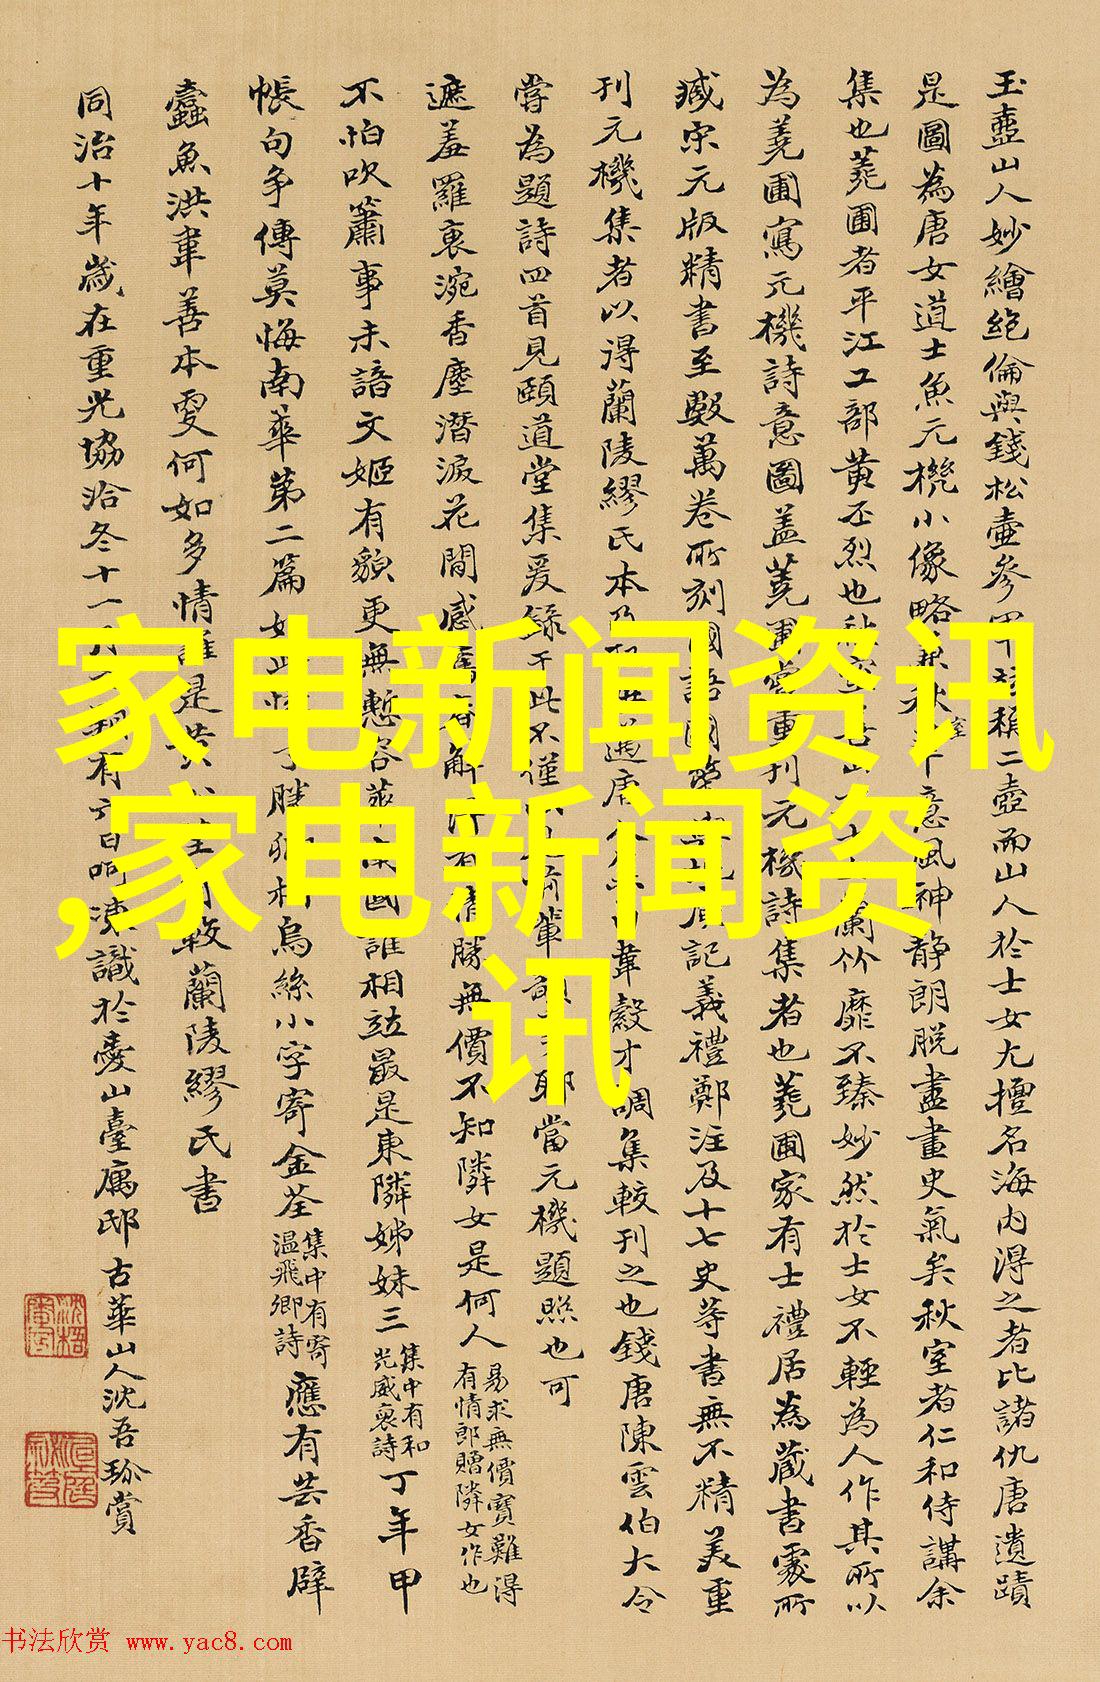 玉壺山人妙繪絕倫與錢松壺參
稱二壺而山人於士女尤擅名海內得之者比諸仇唐遺蹟
是圖為唐女道士魚元機小像略
意風神靜朗脫盡畫史氣矣秋室者仁和侍講余
集也蕘圃者平江工部黃丕烈也秋室
蘭竹靡不臻妙然於士女不輕為人作其所以
為蕘圃寫元機詩意圖蓋蕘圃嘗重刊元機詩集者也蕘圃家有士禮居為藏書處所
臧宋元版精書至數萬卷所刻國語國策
記義禮鄭注及十七史等書無不精美重
刊元機集者以得蘭陵繆氏本乃
唐人
韋縠才調集較刊之也錢唐陳雲伯大令
嘗為題詩四首見頤道堂集爰錄于此不僅
耶當元機題照也可
遮羞羅裏涴香塵潛淚花間感
解
有情勝無價不知隣女是何人
易求無價寶難得
有情郎贈隣女作也
不怕吹簫事未諳文姬有貌更無慙
國誰相竝最是東隣姊妹三
集中有和
光威裒詩
丁年甲
帳句爭傳莫悔南華第二篇
烏絲小字寄金荃
集中有寄
溫飛卿詩
應有芸香辟
蠹魚洪韋善本更何如多情誰是黃
較蘭陵繆氏書
同治十年歲在重光協洽冬十一月
識於臺山臺寓邸古華山人沈吾珎賞
家电新闻资讯
,家电新闻资
讯
书法欣赏 www.yac8.com